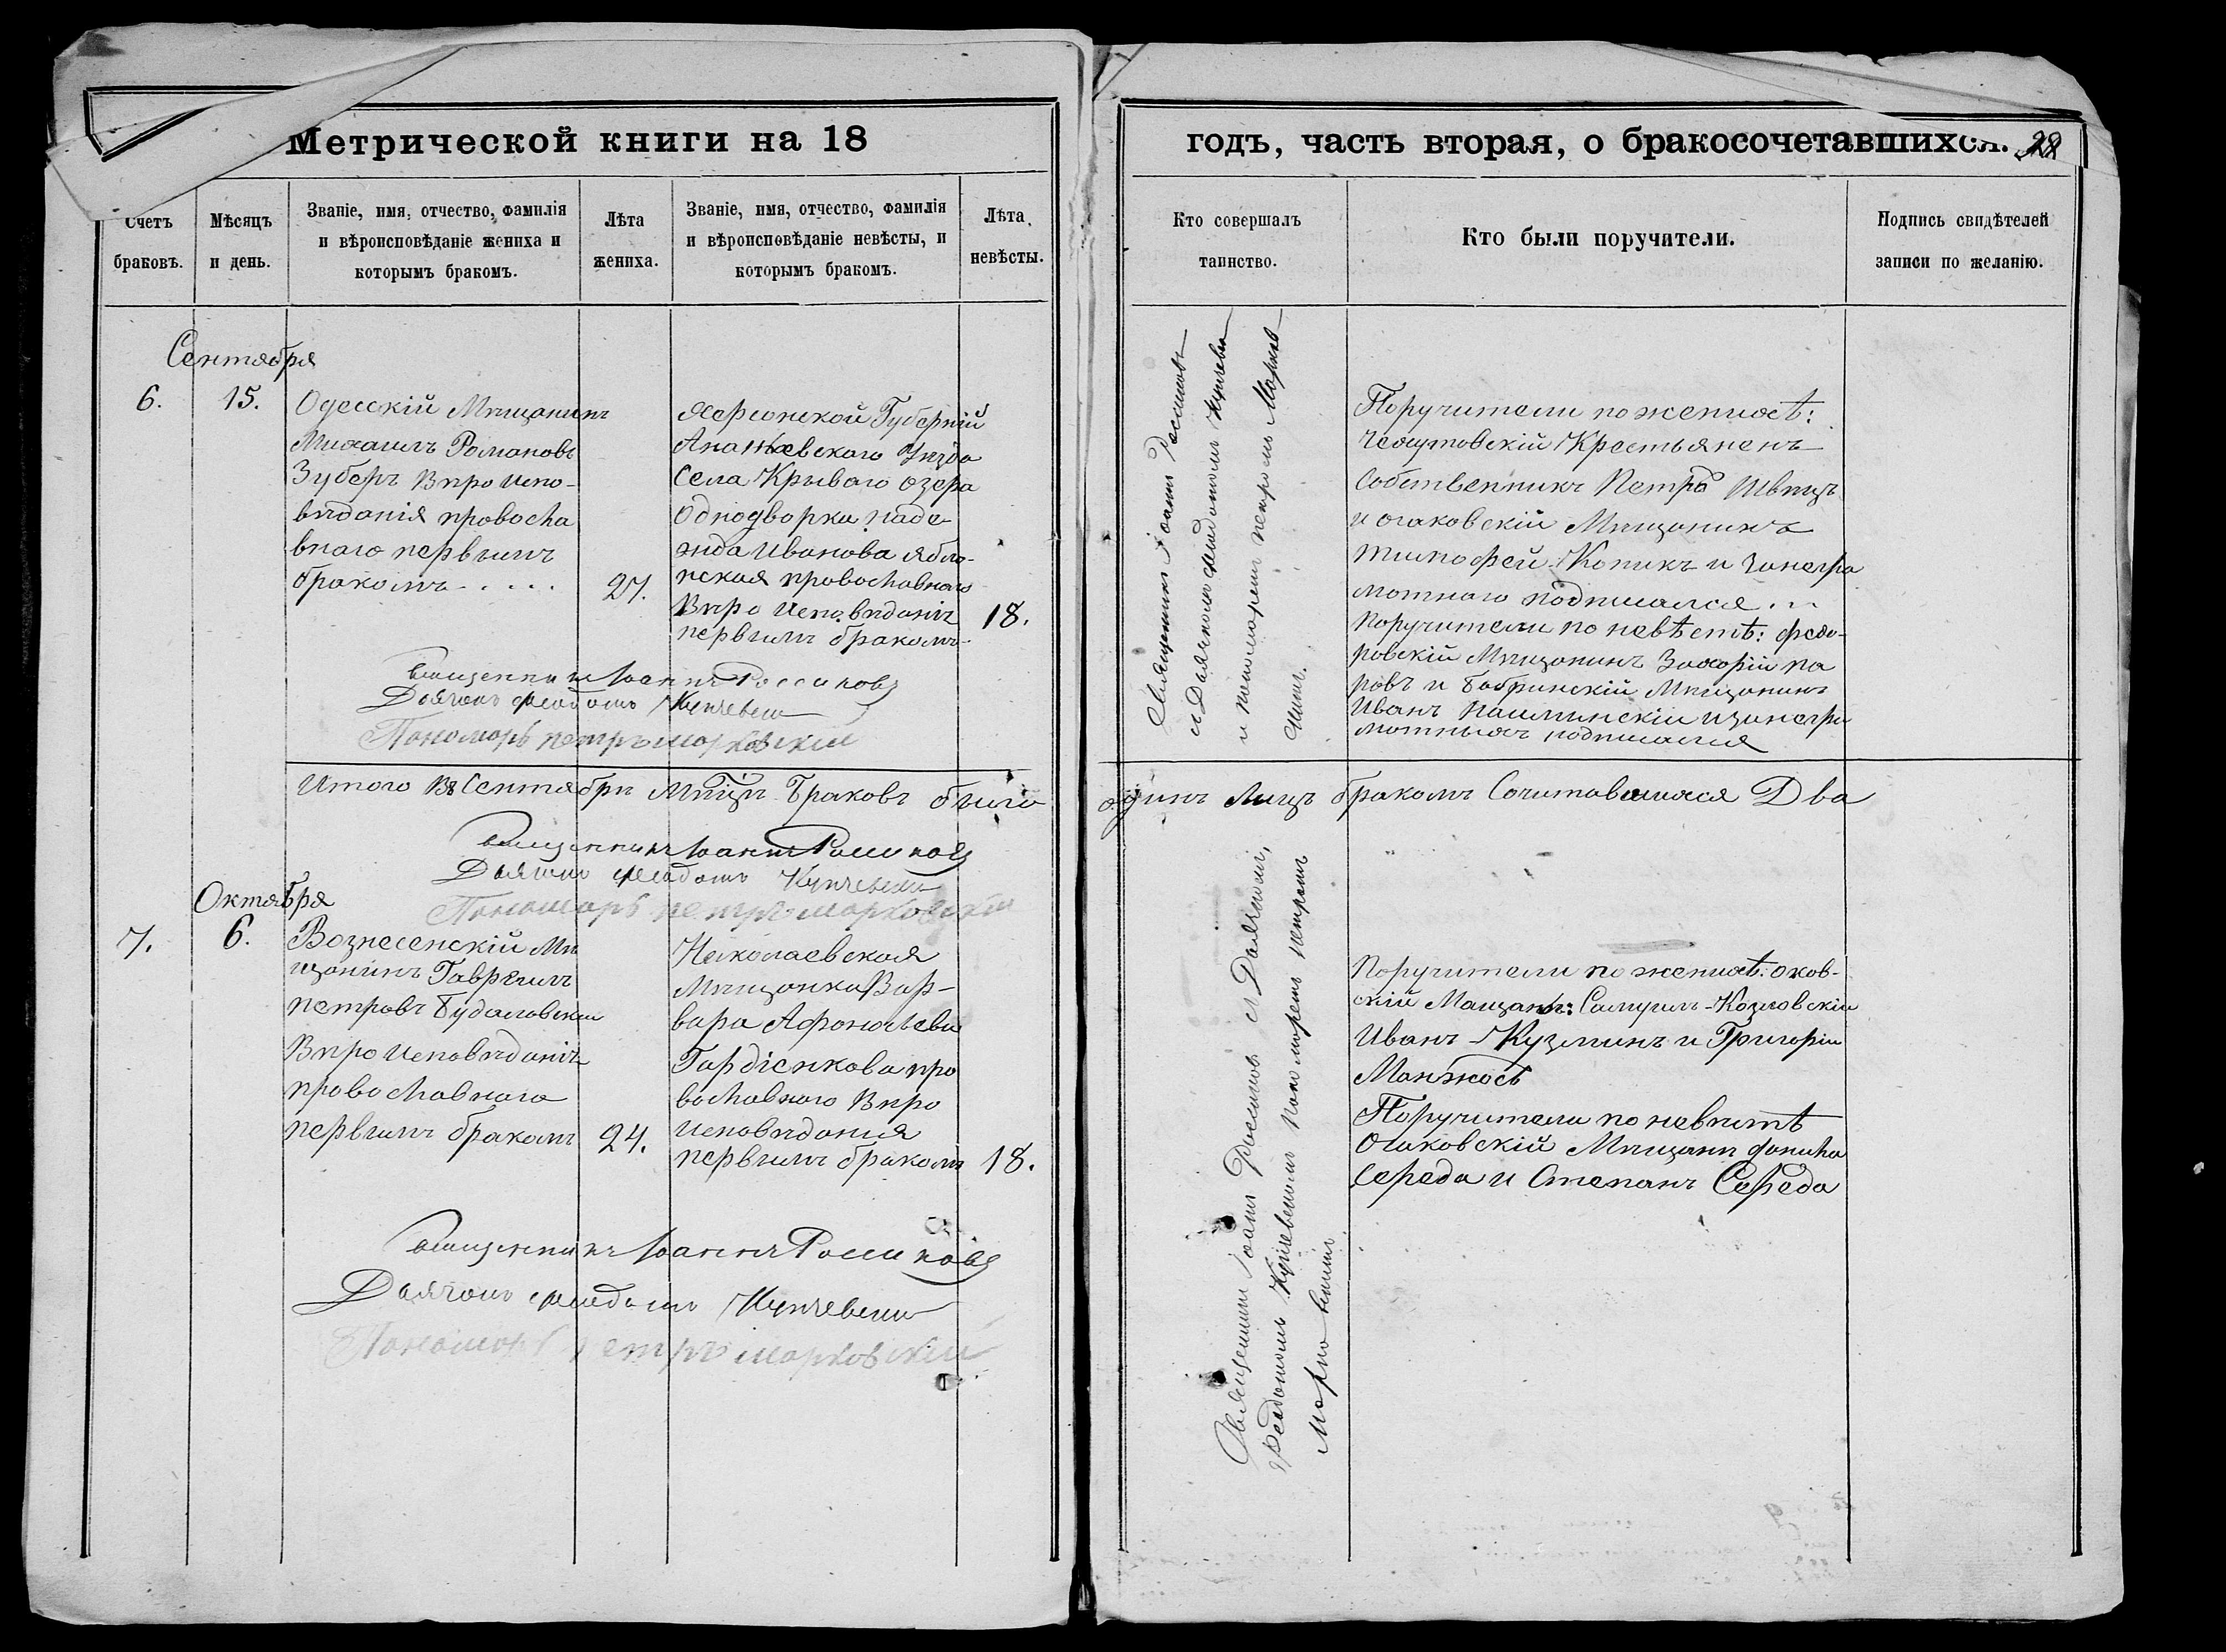 Метрической книги на 18
годъ, часть вторая, о бракосочетавшихся. 28
Счетъ
браковъ.
Мѣсяцъ
и день.
Званіе, имя, отчество, фамилія
и вѣроисповѣданіе жениха и
которымъ бракомъ.
Лѣта
жениха.
Званіе, имя, отчество, фамилія
и вѣроисповѣданіе невѣсты, и
которымъ бракомъ.
Лѣта
невѣсты.
Кто совершалъ
таинство.
Кто были поручители.
Подпись свидѣтелей
записи по желанію.
Сентября
6.
15.
Одесскій Мѣщанинъ
Михаилъ Романовъ
Зуберъ Вѣро испо-
вѣданія провосла
внаго первымъ
бракомъ . . . .
27.
Херсонской Губерній
Ананьевскаго Уѣзда
Села Крываго озера
Однодворка наде-
жда Иванова Ябло-
нская провославнаго
Вѣро Исповѣданія
первымъ бракомъ
18.
Священникъ Іоаннъ Россиновъ
и Дьячкомъ Феодотомъ Купчевск
и пономаремъ петромъ Марков-
скимъ.
Поручители по женихѣ:
Крестьяненъ
Собственникъ Петръ Швецъ
и очаковскій Мѣщанинъ
тимофей Копикъ и за негра
мотнаго подписался . . .
Поручители по невѣстѣ: федо-
ровскій Мѣщанинъ Захорій па
ровъ и бобринскій Мѣщанинъ
Иванъ и за негра
мотныхъ подписался
Священникъ Іоаннъ Россиновъ
Дьячокъ Феодотъ Купчевски
Пономарь петръ марковскій
Итого Въ Сентябрѣ Мѣсцѣ Браковъ было
одинъ Лицъ бракомъ Сочитавшихся Два
Священникъ Іоаннъ Россиновъ
Дьячокъ Феодотъ Купчевски
Пономарь петръ марковскій
Октября
7.
6.
Вознесенскій Мѣ
щанинъ Гавріилъ
петровъ Будаловскій
Вѣро Исповѣданія
провославнаго
первымъ бракомъ
24.
Николаевская
Мѣщанка Вар-
вара Афонасьева
Гордіенкова про
вославнаго Вѣро
исповѣданія
первымъ бракомъ
18.
Священникъ Іоаннъ Россиновъ съ Дьячкомъ,
Феодотомъ Купчевскимъ пономаремъ петромъ
Марковскимъ
Поручители по женихѣ: очков-
скій Мащанѣ: Самуилъ Козловскій
Иванъ Кузминъ и Григорій
Манжосъ
Поручители по невѣстѣ
Очаковскій Мѣщанѣ
середа и Степанъ Середа
Священникъ Іоаннъ Россиновъ
Дьячокъ Феодотъ Купчевски
Пономарь петръ марковскій